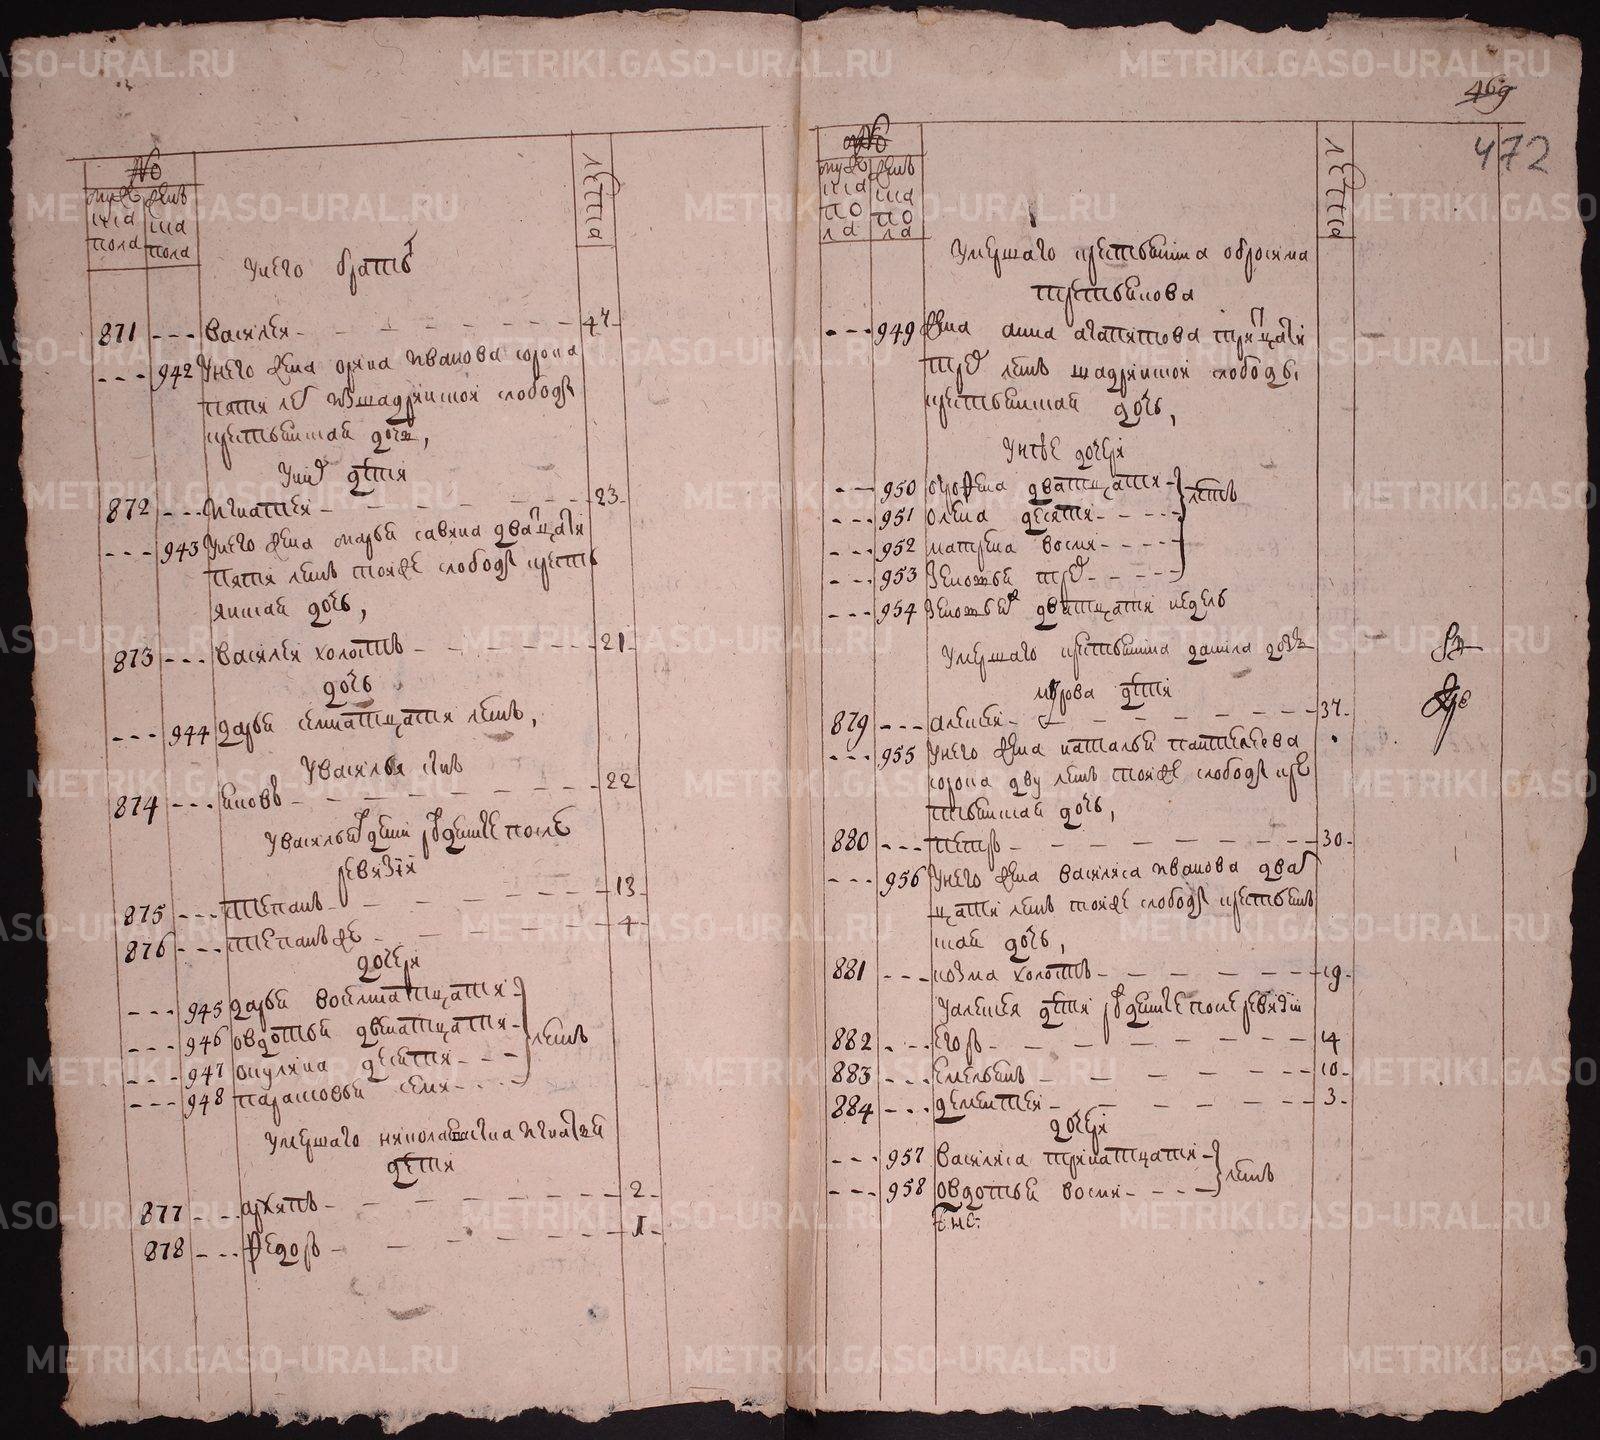 №
муже ска пола
женс ка пола
лета
У него братъ
871 --- Василеи - 47
--- 942 У него жена орина Иванова сорока
пяти лет Шадринской слободы
крестьянская дочь,
У них дети
872 --- Игнатеи - 23
--- 943 У него жена марья савина дватцати
пяти летъ тояже слободы кресть
янская дочь,
873 --- Василеи холостъ - 21
дочь
--- 944 дарья семнатцати летъ,
У Василья снъ
874 --- Яковъ - 22
У Василья дети рожденые после
ревизии
875 --- степанъ - 13
876 --- степанъ же - 4
дочери
--- 945 дарья восемнатцати
--- 946 овдотья двенатцати
--- 947 окулина десяти
летъ
--- 948 парасковья семи
Умершаго Игнатья
дети
877 --- архипъ - 2
878 --- федоръ - 1
469
472
№
муже ска по ла
женс ка по ла
лета
Умершаго крестьянина
третьякова
--- 949 жена анна агапитова тритцати
трех летъ шадринской слободы
крестьянская дочь,
У нея дочери
--- 950 дватцати
--- 951 олена десяти
--- 952 матрена восми
--- 953 Зеновья трех
летъ
--- 954 Зеновья ж дватцати недель
Умершаго крестьянина данила
дети
879 --- алексеи - 37
--- 955 У него жена наталья пантелеева
сорока дву летъ тояже слободы кре
стьянская дочь,
880 --- петръ - 30
--- 956 У него жена василиса Иванова дват
цати летъ тояже слободы крестьянъ
ская дочь,
881 --- козма холостъ - 19
У алексея дети рожденые после ревизии
882 --- Егоръ - 14
883 --- Емельянъ - 10
884 --- дементеи - 3
дочери
--- 957 василиса тринатцати
--- 958 овдотья восми
летъ
METRIKI.GASO-URAL.RU